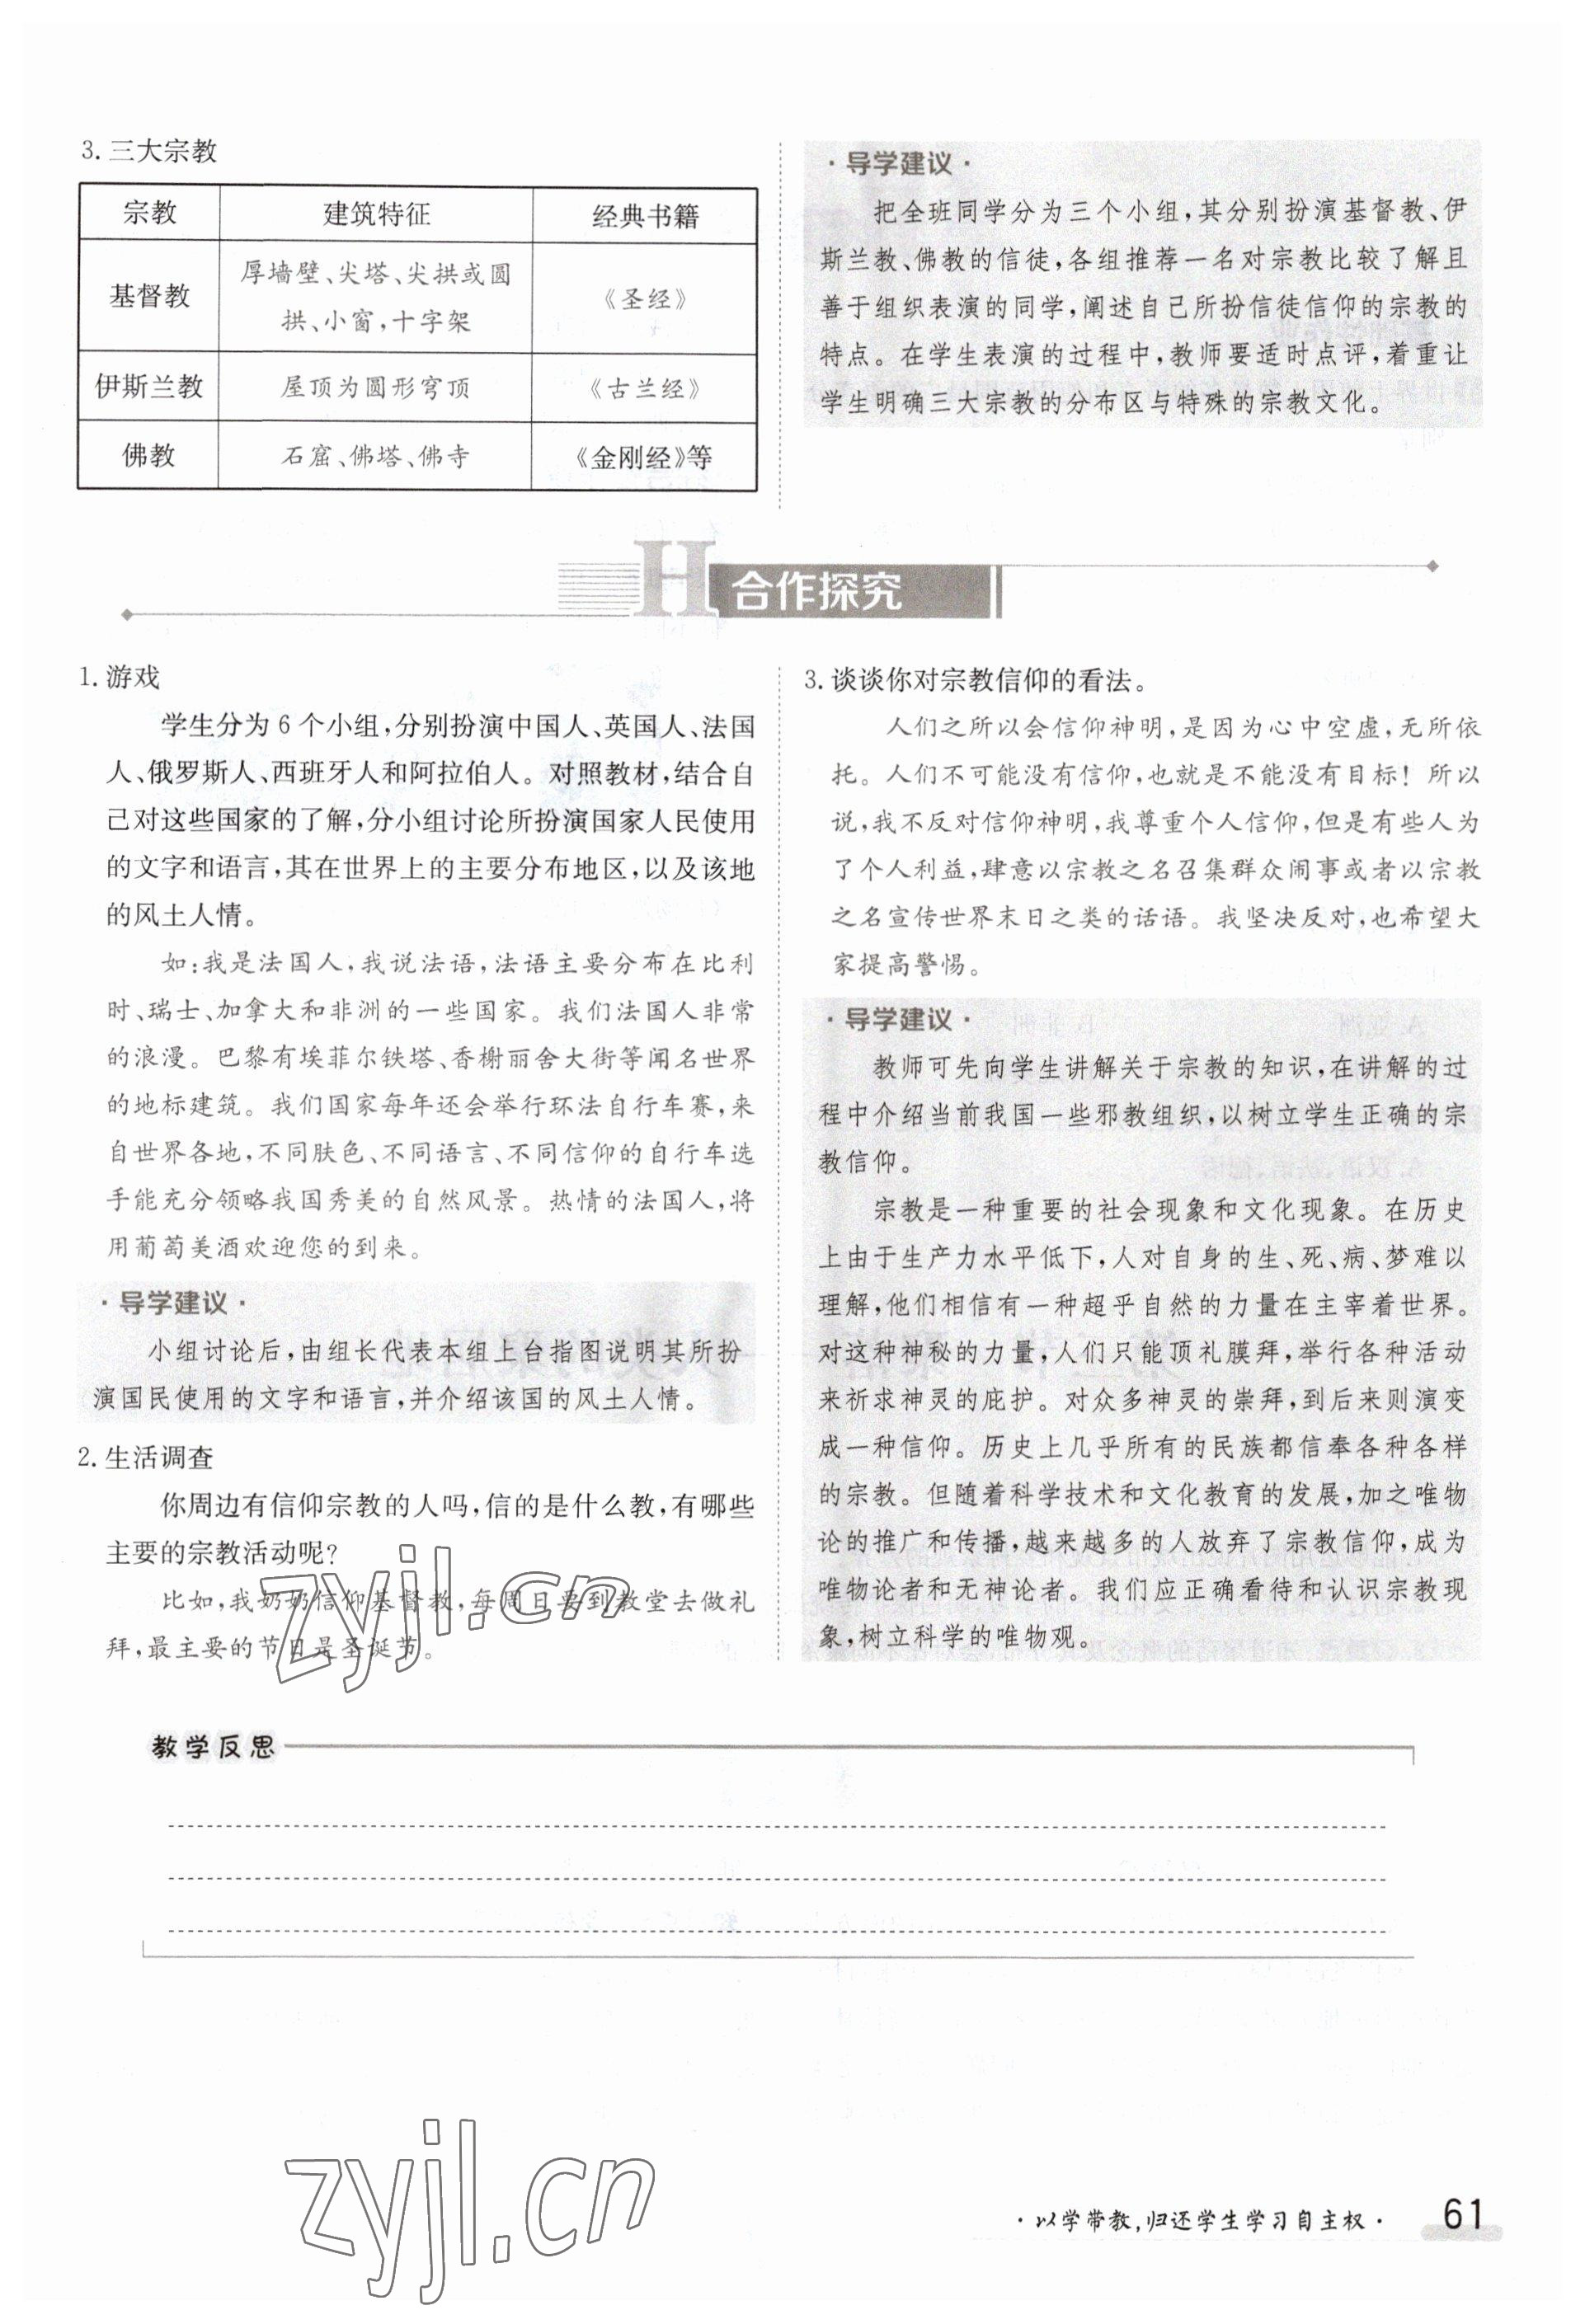 3. 三大宗教
宗教 建筑特征 经典书籍
基督教 厚墙壁、尖塔、尖拱或圆
拱、小窗,十字架 《圣经》
伊斯兰教 屋顶为圆形穹顶 《古兰经》
佛教 石窟、佛塔、佛寺 《金刚经》等
·导学建议·
把全班同学分为三个小组,其分别扮演基督教、伊
斯兰教、佛教的信徒,各组推荐一名对宗教比较了解且
善于组织表演的同学,阐述自己所扮信徒信仰的宗教的
特点。在学生表演的过程中,教师要适时点评,着重让
学生明确三大宗教的分布区与特殊的宗教文化。
H 合作探究
1. 游戏
学生分为 6 个小组,分别扮演中国人、英国人、法国
人、俄罗斯人、西班牙人和阿拉伯人。对照教材,结合自
己对这些国家的了解,分小组讨论所扮演国家人民使用
的文字和语言,其在世界上的主要分布地区,以及该地
的风土人情。
如:我是法国人,我说法语,法语主要分布在比利
时、瑞士、加拿大和非洲的一些国家。我们法国人非常
的浪漫。巴黎有埃菲尔铁塔、香榭丽舍大街等闻名世界
的地标建筑。我们国家每年还会举行环法自行车赛,来
自世界各地,不同肤色、不同语言、不同信仰的自行车选
手能充分领略我国秀美的自然风景。热情的法国人,将
用葡萄美酒欢迎您的到来。
·导学建议·
小组讨论后,由组长代表本组上台指图说明其所扮
演国民使用的文字和语言,并介绍该国的风土人情。
2. 生活调查
你周边有信仰宗教的人吗,信的是什么教,有哪些
主要的宗教活动呢?
比如,我奶奶信仰基督教,每周日要到教堂去做礼
拜,最主要的节日是圣诞节。
3. 谈谈你对宗教信仰的看法。
人们之所以会信仰神明,是因为心中空虚,无所依
托。人们不可能没有信仰,也就是不能没有目标!所以
说,我不反对信仰神明,我尊重个人信仰,但是有些人为
了个人利益,肆意以宗教之名召集群众闹事或者以宗教
之名宣传世界末日之类的话语。我坚决反对,也希望大
家提高警惕。
·导学建议·
教师可先向学生讲解关于宗教的知识,在讲解的过
程中介绍当前我国一些邪教组织,以树立学生正确的宗
教信仰。
宗教是一种重要的社会现象和文化现象。在历史
上由于生产力水平低下,人对自身的生、死、病、梦难以
理解,他们相信有一种超乎自然的力量在主宰着世界。
对这种神秘的力量,人们只能顶礼膜拜,举行各种活动
来祈求神灵的庇护。对众多神灵的崇拜,到后来则演变
成一种信仰。历史上几乎所有的民族都信奉各种各样
的宗教。但随着科学技术和文化教育的发展,加之唯物
论的推广和传播,越来越多的人放弃了宗教信仰,成为
唯物论者和无神论者。我们应正确看待和认识宗教现
象,树立科学的唯物观。
zyjl.cn
教学反思
zyjl.cn
·以学带教,归还学生学习自主权· 61